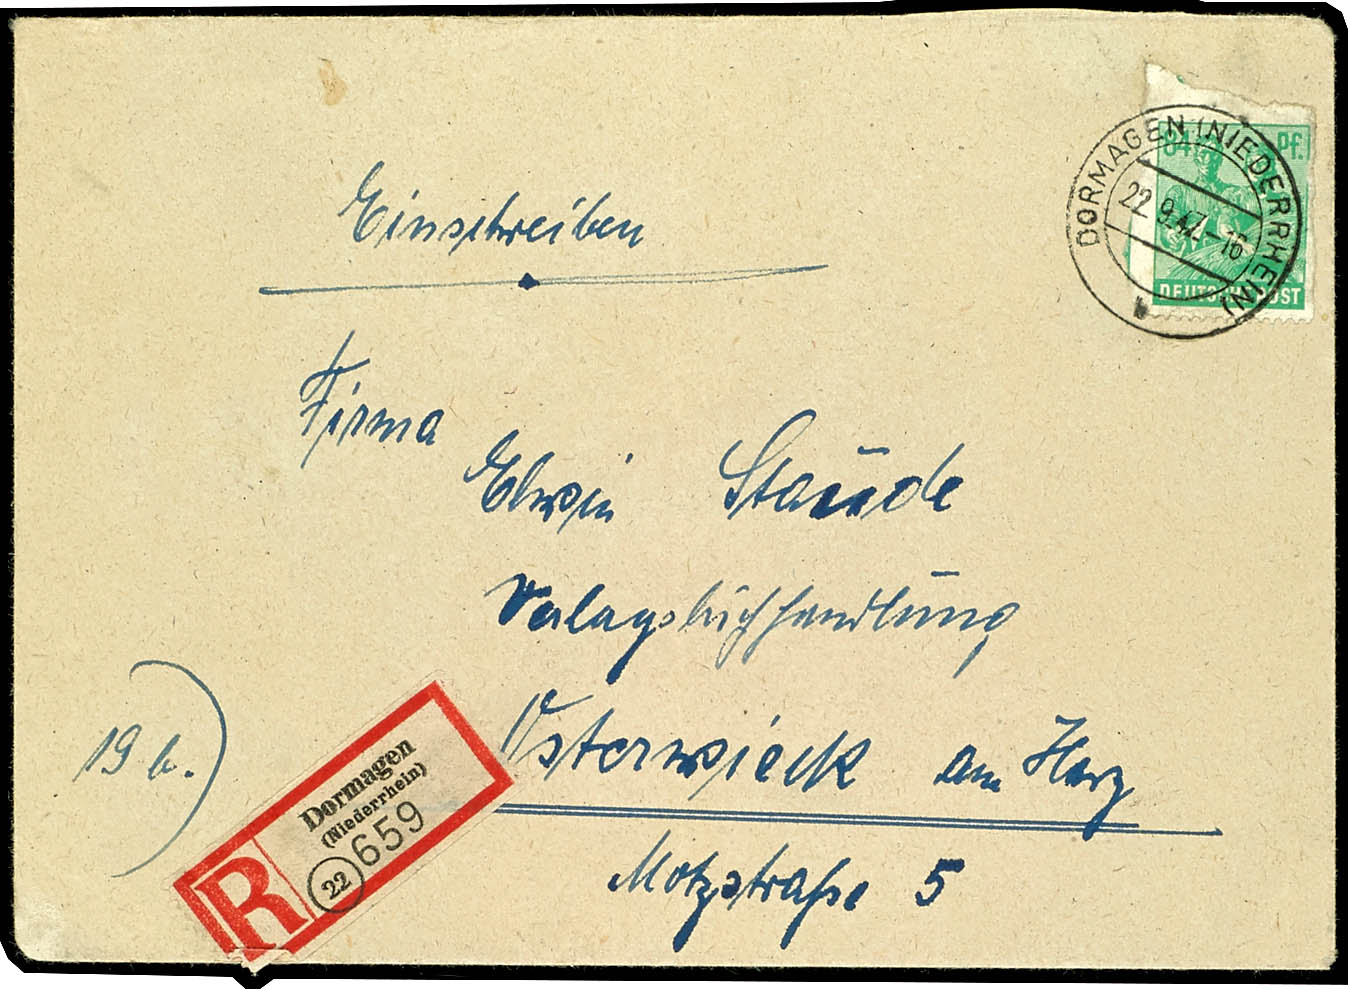 84 Pf.
DEUTSCHE POST
DORMAGEN (NIEDERRHEIN)
22.9.47.-16
b
Einschreiben
Firma
Erwin Staude
Verlagsbuchhandlung
19 b.
Osterwieck am Harz
Motzstraße 5
R
Dormagen
(Niederrhein)
22
659